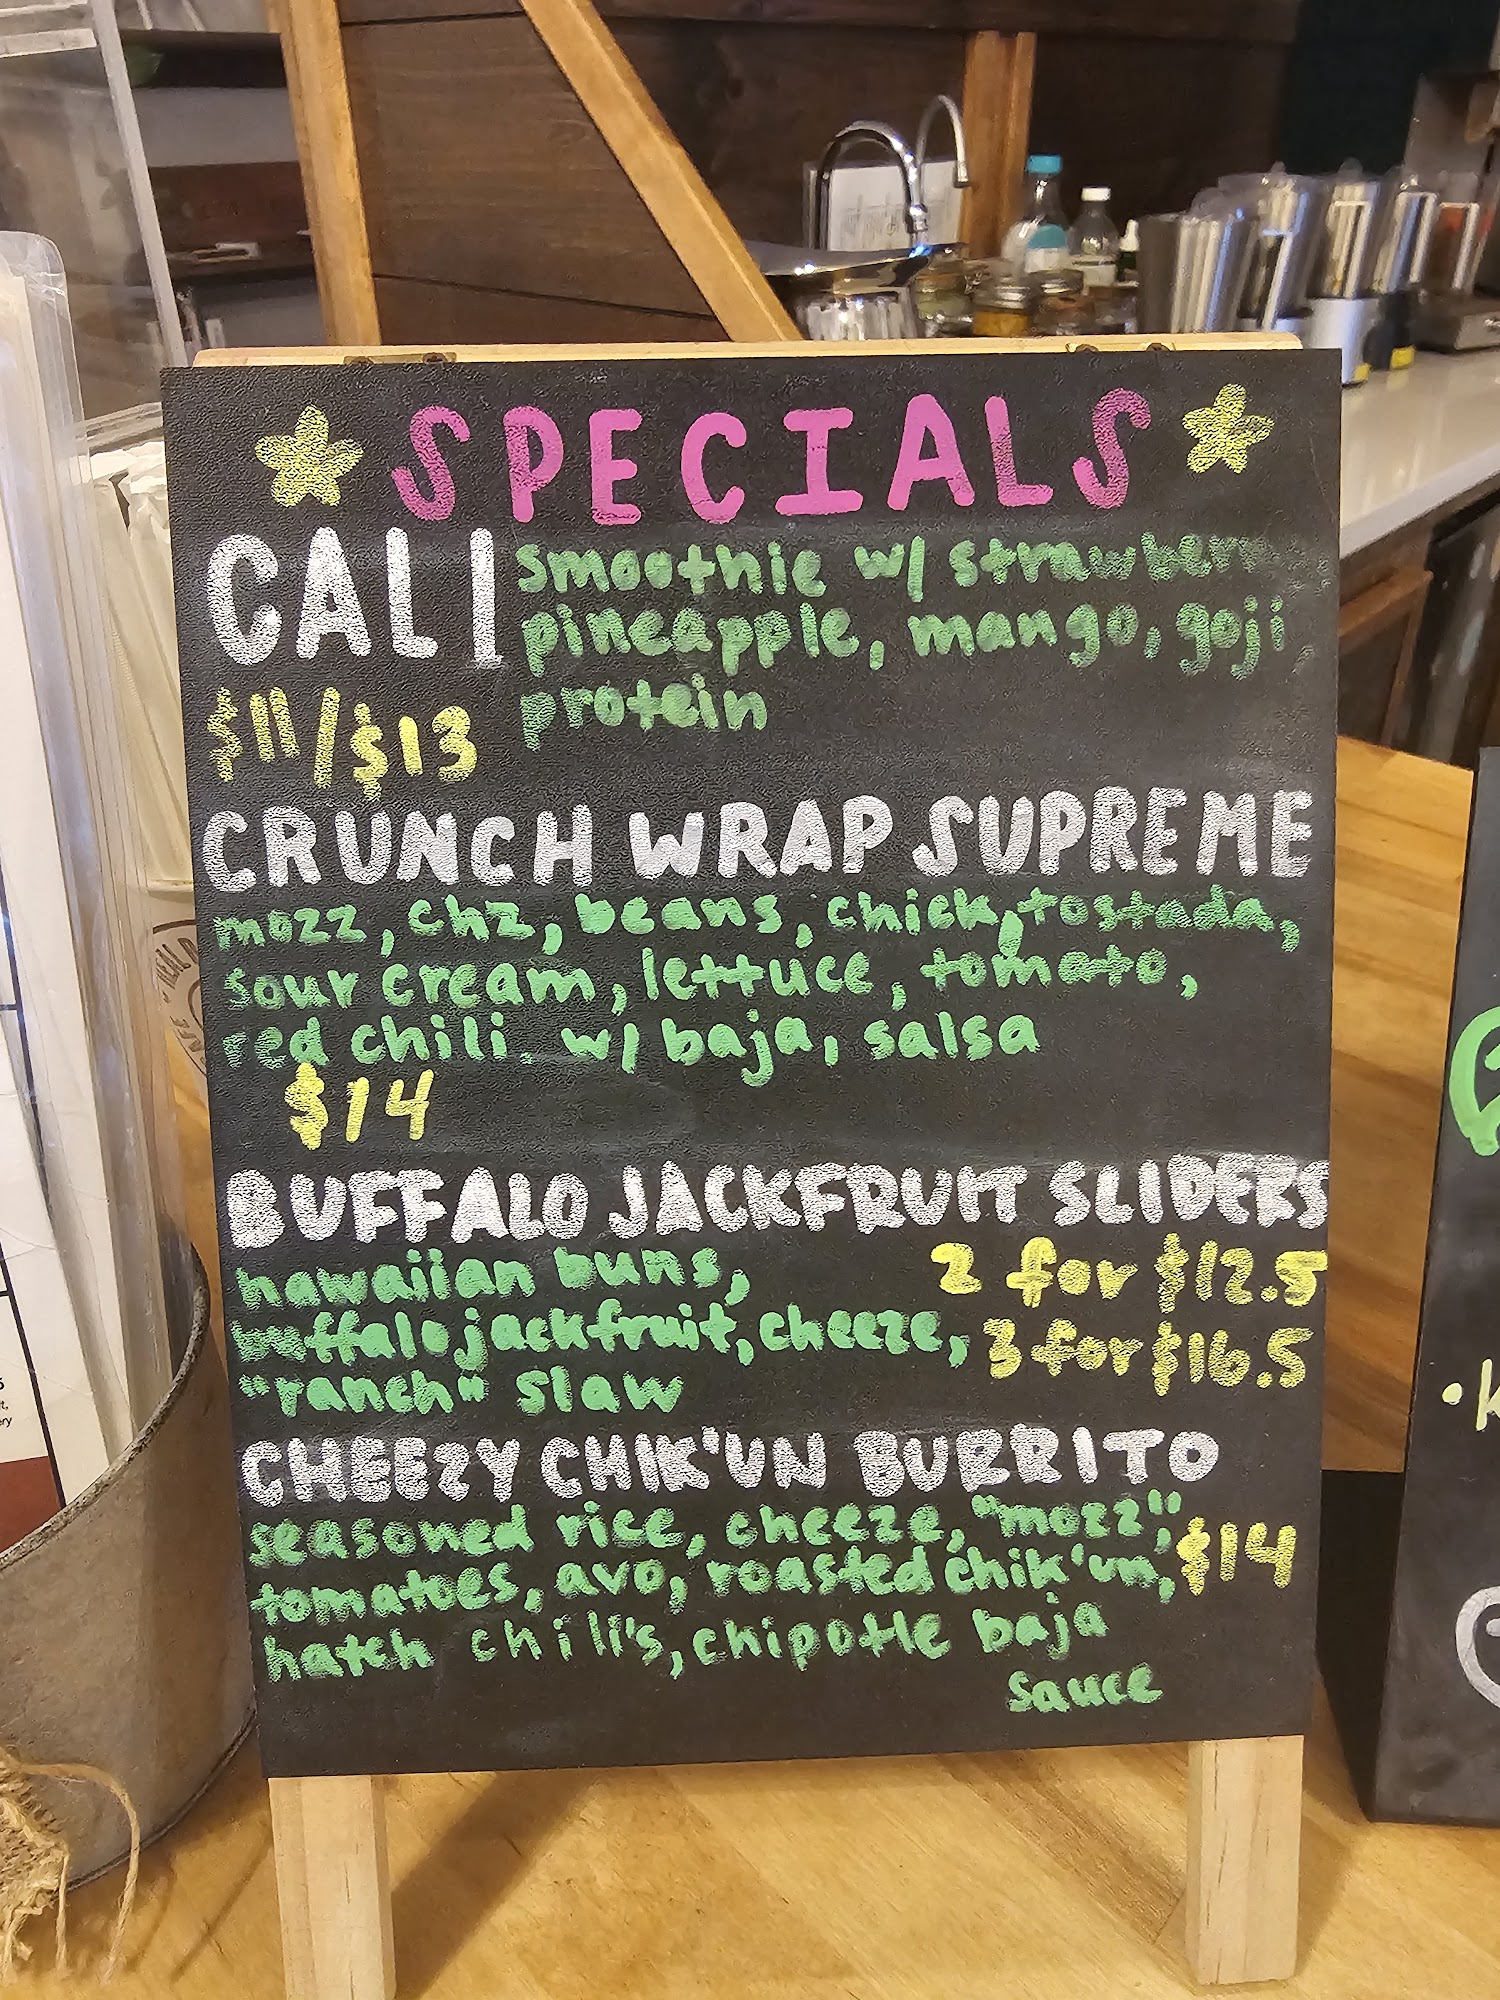 SPECIALS
CALI
smoothie w/
pineapple, mango, goji
protein
$11/$13
CRUNCH WRAP SUPREME
mozz, chz, beans, chick, tostada,
sour cream, lettuce, tomato,
red chili. w/ baja, salsa
$14
BUFFALO JACKFRUIT SLIDERS
hawaiian buns,
2 for $12.5
buffalo jackfruit, cheeze,
3 for $16.5
"ranch" slaw
CHEEZY CHIK'UN BURRITO
seasoned rice, cheeze, "mozz",
$14
tomatoes, avo, roasted chik'un,
hatch chili's, chipotle baja
sauce